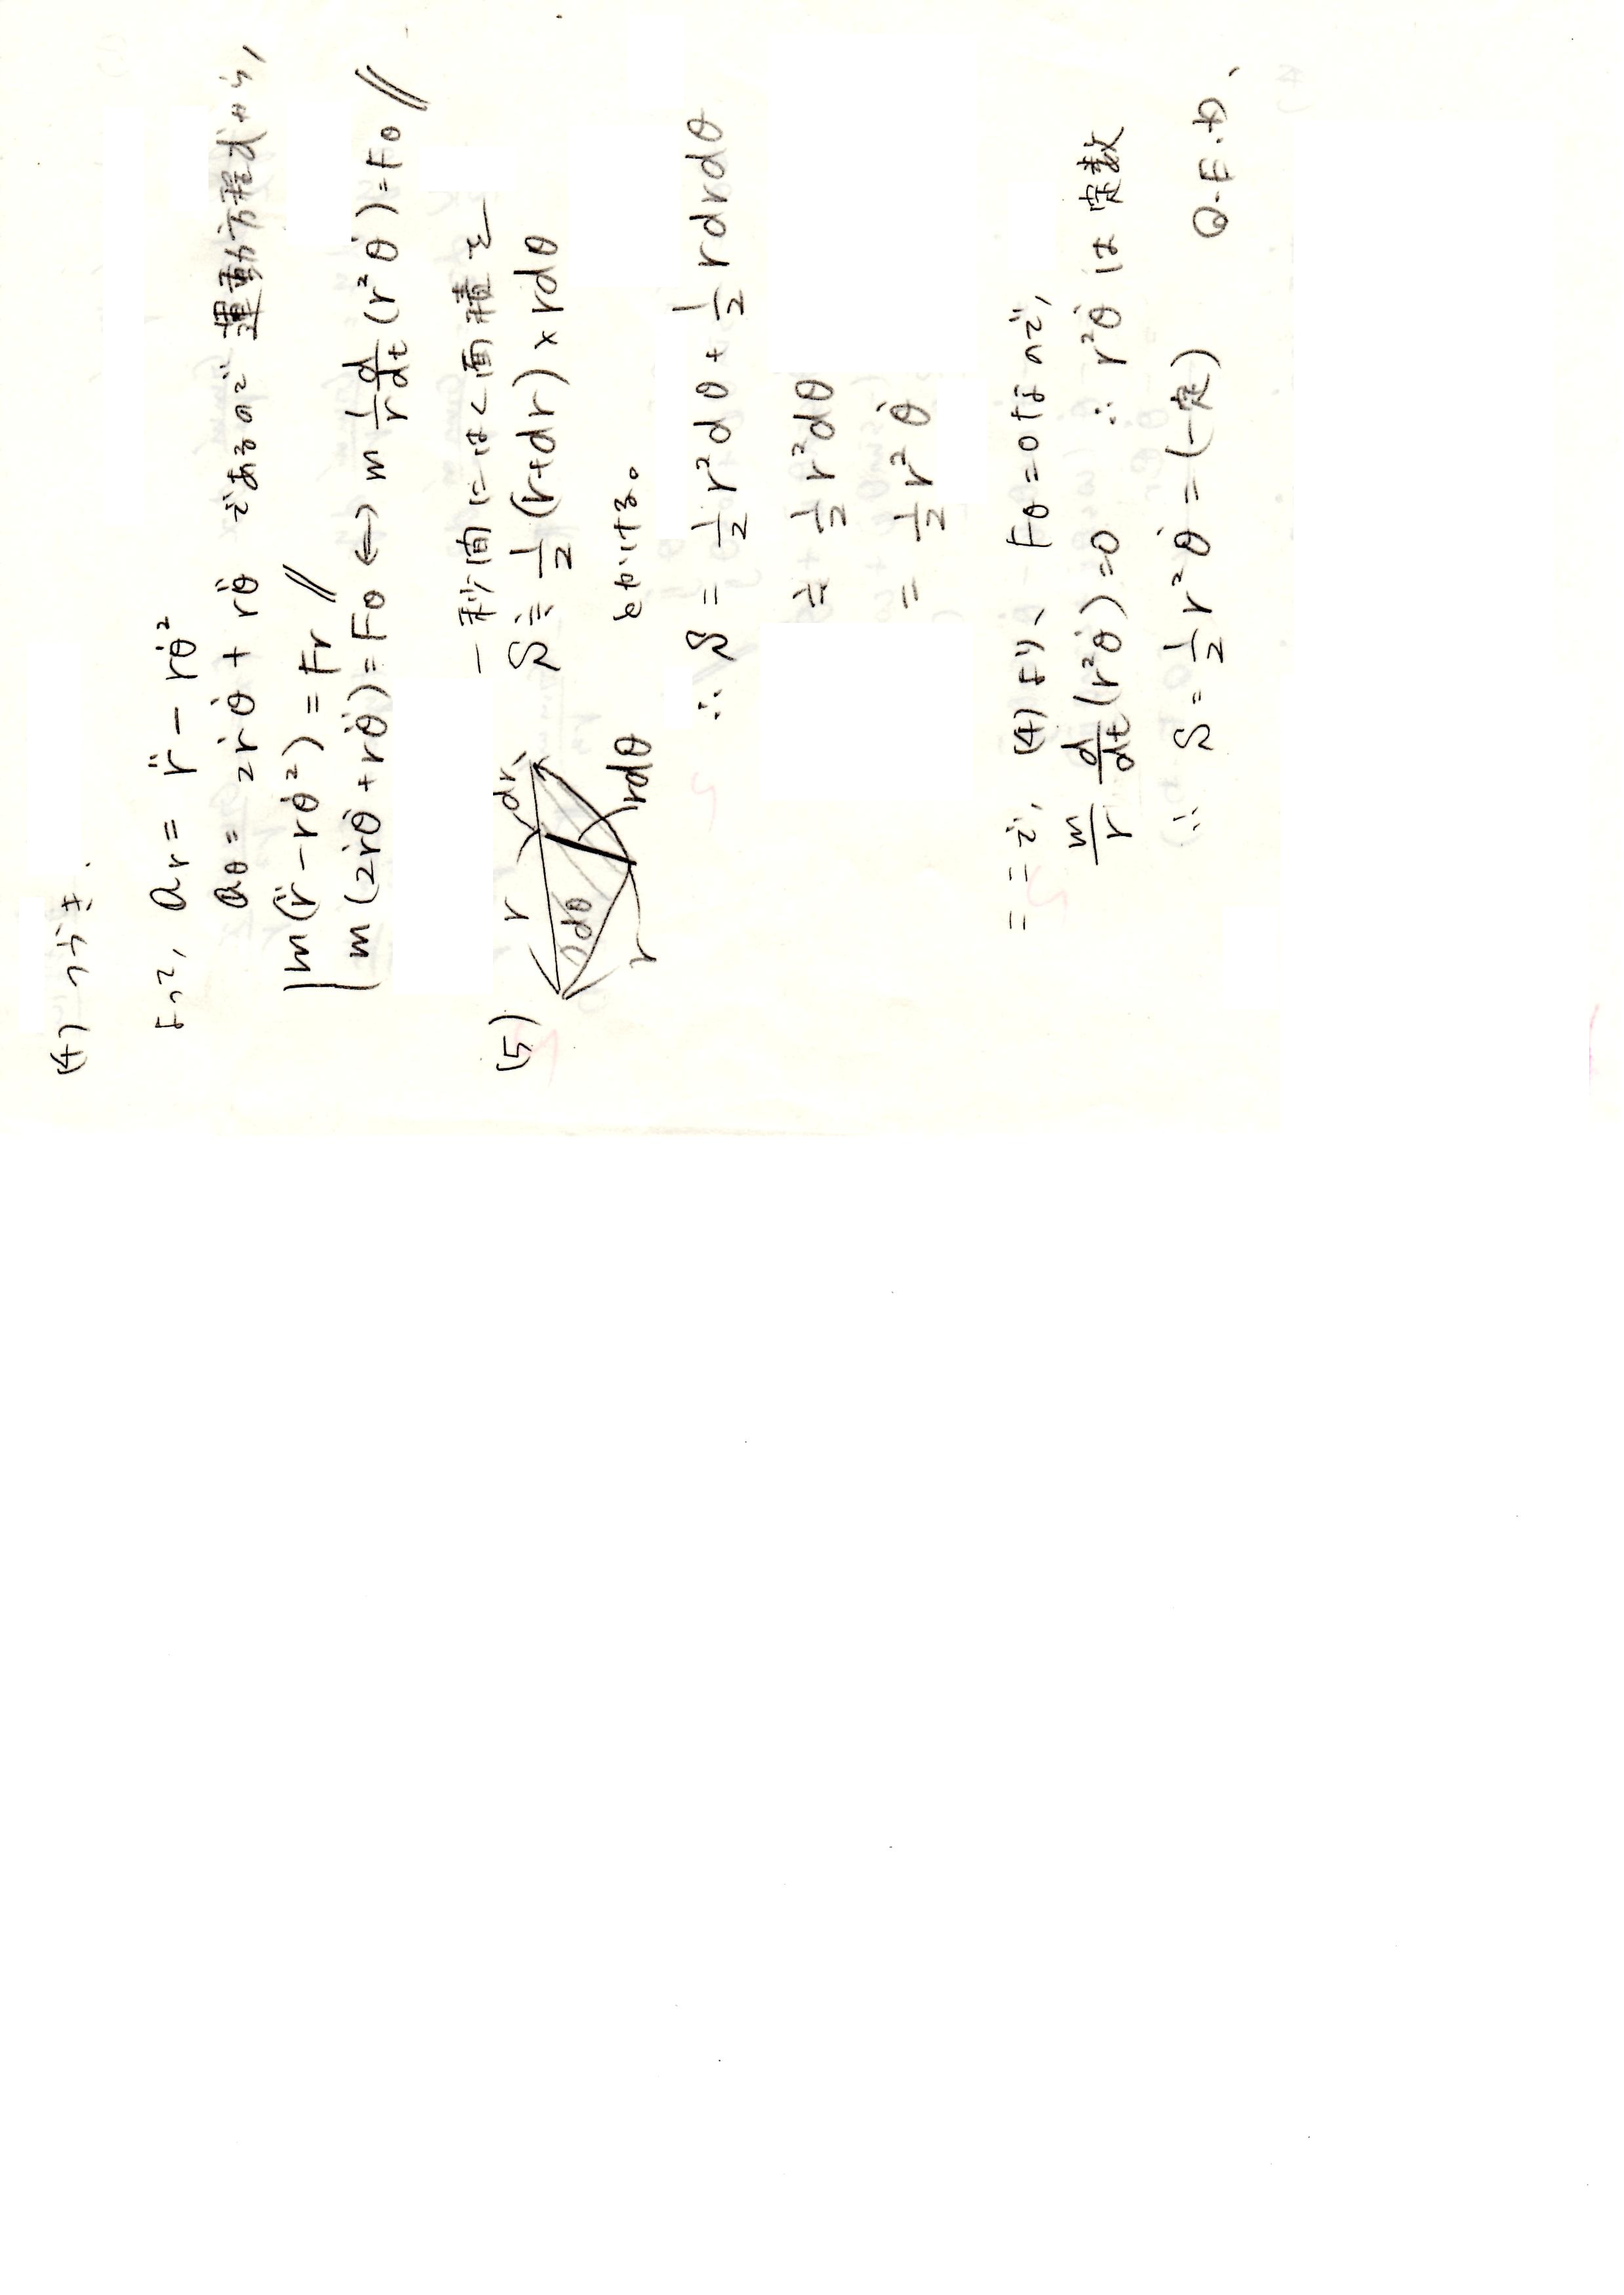 (4) つづき.
よって, ar = r̈ − rθ̇²
aθ = 2ṙθ̇ + rθ̈ であるので 運動方程式から,
m(r̈ − rθ̇²) = Fr //
m(2ṙθ̇ + rθ̈) = Fθ ↔ m 1/r d/dt (r²θ̇) = Fθ //
(5)
r
dr
dθ
r
rdθ
一秒間にはく面積を
S ≒ 1/2 (r+dr) × rdθ
とかける。
∴ S = 1/2 r²dθ + 1/2 rdrdθ
≒ 1/2 r²dθ
= 1/2 r²θ̇
ここで, (4)より、 Fθ = 0 なので,
m/r d/dt (r²θ̇) = 0 ∴ r²θ̇ は 定数
∴ S = 1/2 r²θ̇ = (一定) Q.E.D、